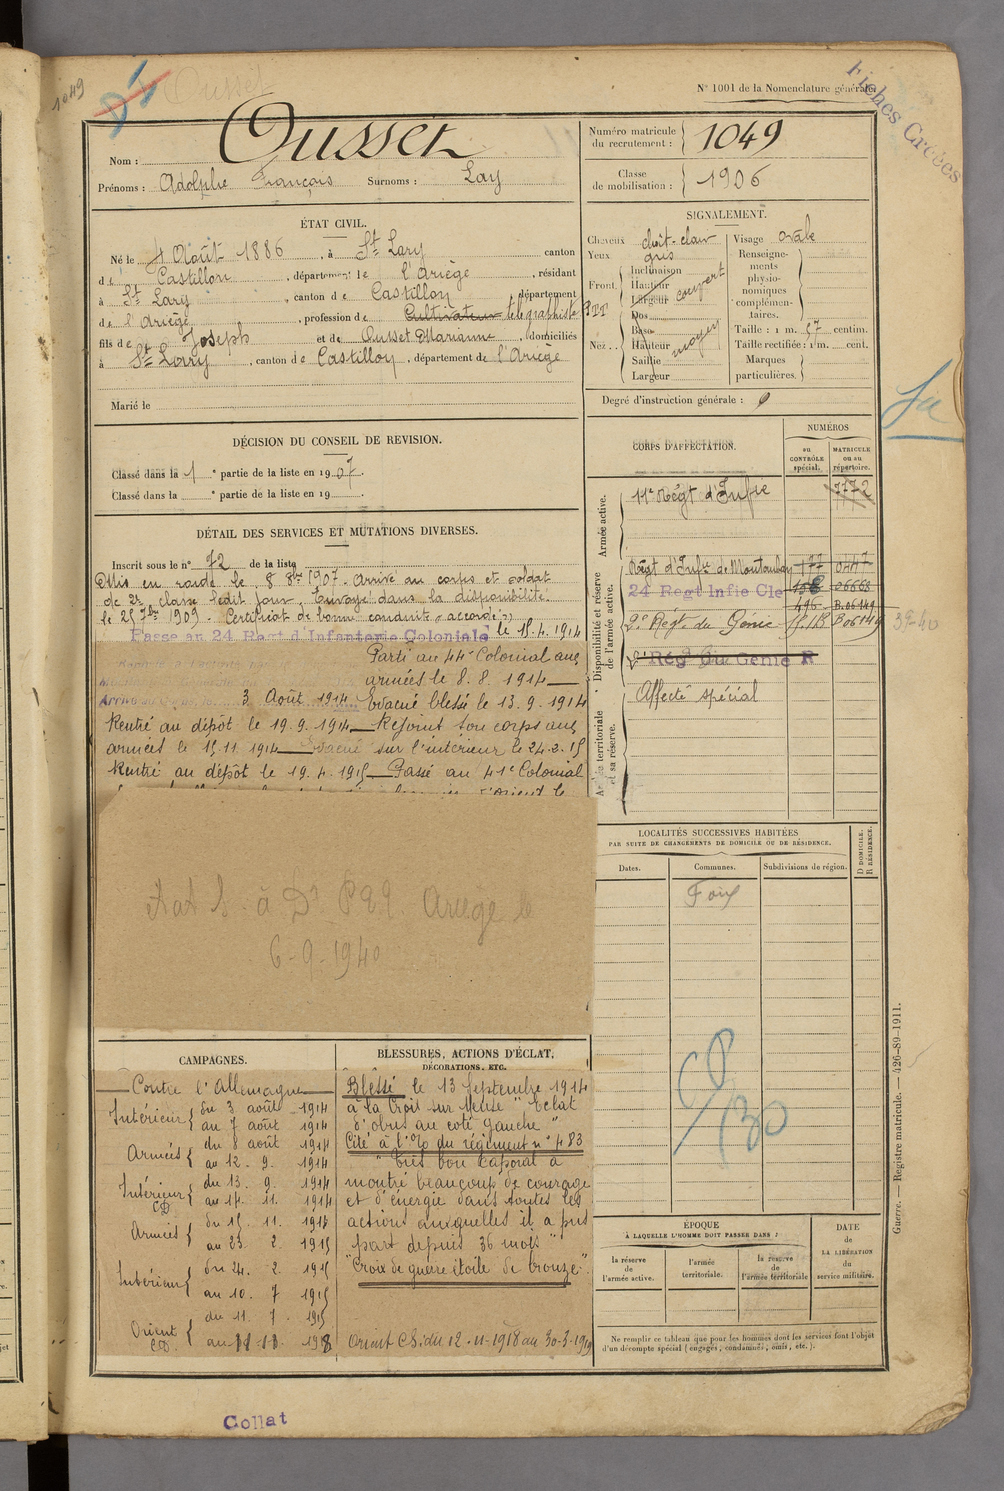 1049
Ousset
N° 1001 de la Nomenclature générale
Fiches Créées
Nom : Ousset
Prénoms : Adolphe François Surnoms : Lay
Numéro matricule du recrutement : 1049
Classe de mobilisation : 1906
ÉTAT CIVIL.
Né le 4 Août 1886, à St Lary canton
de Castillon, département de l'Ariège, résidant
à St Lary, canton de Castillon, département
de l'Ariège, profession de Cultivateur télégraphiste PTT
fils de Joseph et de Ousset Marianne, domiciliés
à St Lary, canton de Castillon, département de l'Ariège
Marié le
SIGNALEMENT.
Cheveux chât-clair Visage ovale
Yeux gris
Front. Inclinaison Hauteur Largeur couvert
Nez.. Dos Base Hauteur Saillie Largeur moyen
Renseignements physionomiques complémentaires.
Taille : 1 m. 57 centim.
Taille rectifiée : 1 m. cent.
Marques particulières.
Degré d'instruction générale :
DÉCISION DU CONSEIL DE REVISION.
Classé dans la 1 e partie de la liste en 1907.
Classé dans la e partie de la liste en 19
DÉTAIL DES SERVICES ET MUTATIONS DIVERSES.
Inscrit sous le n° 72 de la liste
Mis en route le 8 8bre 1907. Arrivé au corps et soldat
de 2e classe ledit jour. Envoyé dans la disponibilité
le 25 7bre 1909. Certificat de bonne conduite "accordé"
Passé au 24 Regt d'Infanterie Coloniale le 15.4.1914
Parti au 44e Colonial aux
armées le 8.8.1914
Arrivé au Corps, le 3 Août 1914 Evacué blessé le 13.9.1914
Rentré au dépôt le 19.9.1914 Rejoint son corps aux
armées le 15.11.1914 Evacué sur l'intérieur le 24.2.15
Rentré au dépôt le 19.4.1915 Passé au 41e Colonial
6-9-1940
CORPS D'AFFECTATION.
NUMÉROS
au CONTRÔLE spécial.
MATRICULE ou au répertoire.
Armée active.
11e Régt d'Infie 7772
Disponibilité et réserve de l'armée active.
Régt d'Infie de Montauban
24 Regt Infie Cle 06668
496 B.06149
2e Régt du Génie B06149
39-40
2e Régt du Génie R
Armée territoriale et sa réserve.
Affecté spécial
LOCALITÉS SUCCESSIVES HABITÉES
PAR SUITE DE CHANGEMENTS DE DOMICILE OU DE RÉSIDENCE.
Dates. Communes. Subdivisions de région. D DOMICILE. R RÉSIDENCE.
Foix
CAMPAGNES.
Contre l'Allemagne
Intérieur du 3 août 1914
au 7 août 1914
Armées du 8 août 1914
au 12. 9. 1914
Intérieur CD du 13. 9. 1914
au 14. 11. 1914
Armées du 15. 11. 1914
au 23. 2. 1915
Intérieur du 24. 2. 1915
au 10. 7 1915
Orient CD du 11. 7. 1915
au 11.11. 1918
BLESSURES, ACTIONS D'ÉCLAT,
DÉCORATIONS, ETC.
Blessé le 13 septembre 1914
à la Croix sur Meuse "Eclat
d'obus au coté gauche"
Cité à l'O/ du régiment n° 483
"Très bon caporal a
montré beaucoup de courage
et d'énergie dans toutes les
actions auxquelles il a pris
part depuis 36 mois"
"Croix de guerre étoile de bronze".
Orient CS. du 12-11-1918 au 30-3-1919
ÉPOQUE
À LAQUELLE L'HOMME DOIT PASSER DANS :
la réserve de l'armée active.
l'armée territoriale.
la réserve de l'armée territoriale
DATE de LA LIBÉRATION du service militaire.
Ne remplir ce tableau que pour les hommes dont les services font l'objet
d'un décompte spécial (engagés, condamnés, omis, etc.).
Guerre. — Registre matricule. — 426-89-1911.
Collat